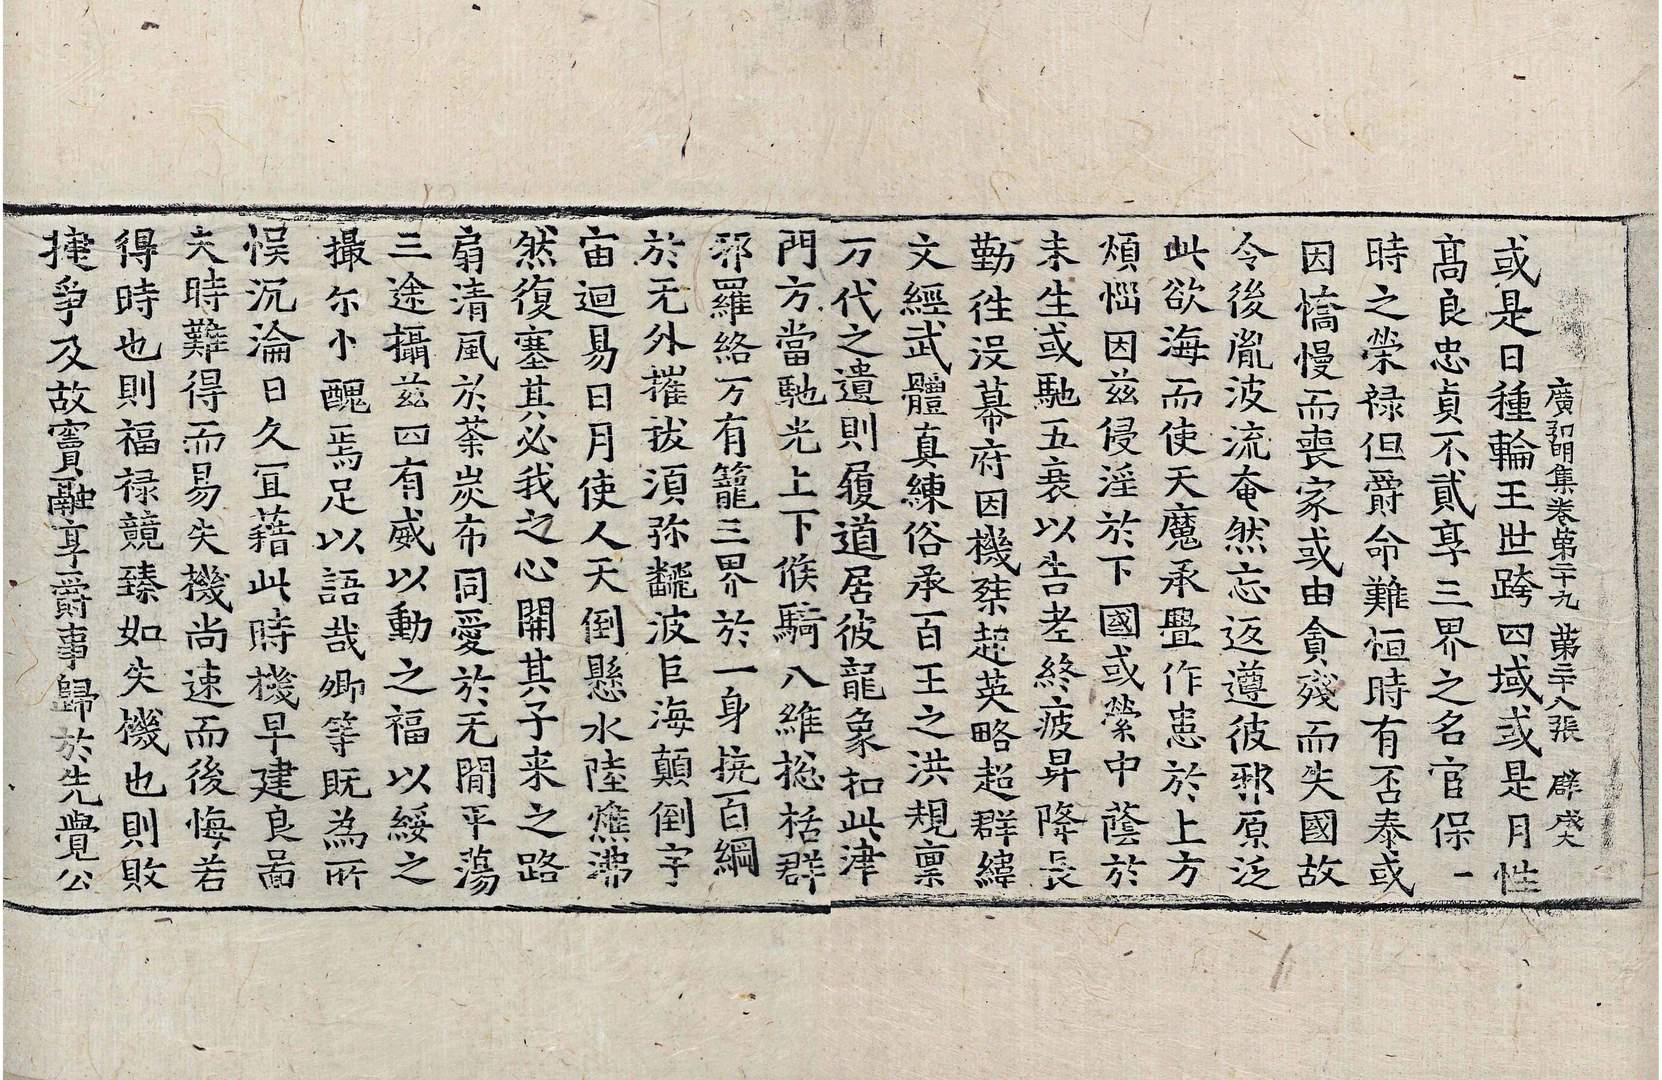 廣弘明集卷第二十九　第二十八張　𨐌成大
或是日種輪王世跨四域或是月性
髙良忠貞不貳享三界之名官保一
時之榮禄但爵命難恒時有否泰或
因憍慢而喪家或由貪殘而失國故
令後胤波流奄然忘返遵彼邪原泛
此欲海而使天魔承舋作患於上方
煩惱因茲侵淫於下國或縈中蔭於
未生或馳五衰以告老終疲昇降長
勤徃没幕府因機桀起英略超群緯
文經武體真練俗承百王之洪規禀
万代之遺則履道居彼龍象扣此津
門方當馳光上下候騎八維捴括群
邪羅絡万有籠三界於一身撓百綱
於无外摧拔湏弥飜波巨海顛倒宇
宙迴易日月使人天倒懸水陸燋沸
然復塞其必我之心開其子来之路
扇清風於荼炭布同愛於无閒平蕩
三途攝茲四有威以動之福以綏之
撮尓小醜焉足以語哉卿等既為所
悮沉淪日久冝藉此時機早建良啚
夫時難得而易失機尚速而後悔若
得時也則福禄競臻如失機也則敗
捷爭及故竇融享爵事歸於先覺公